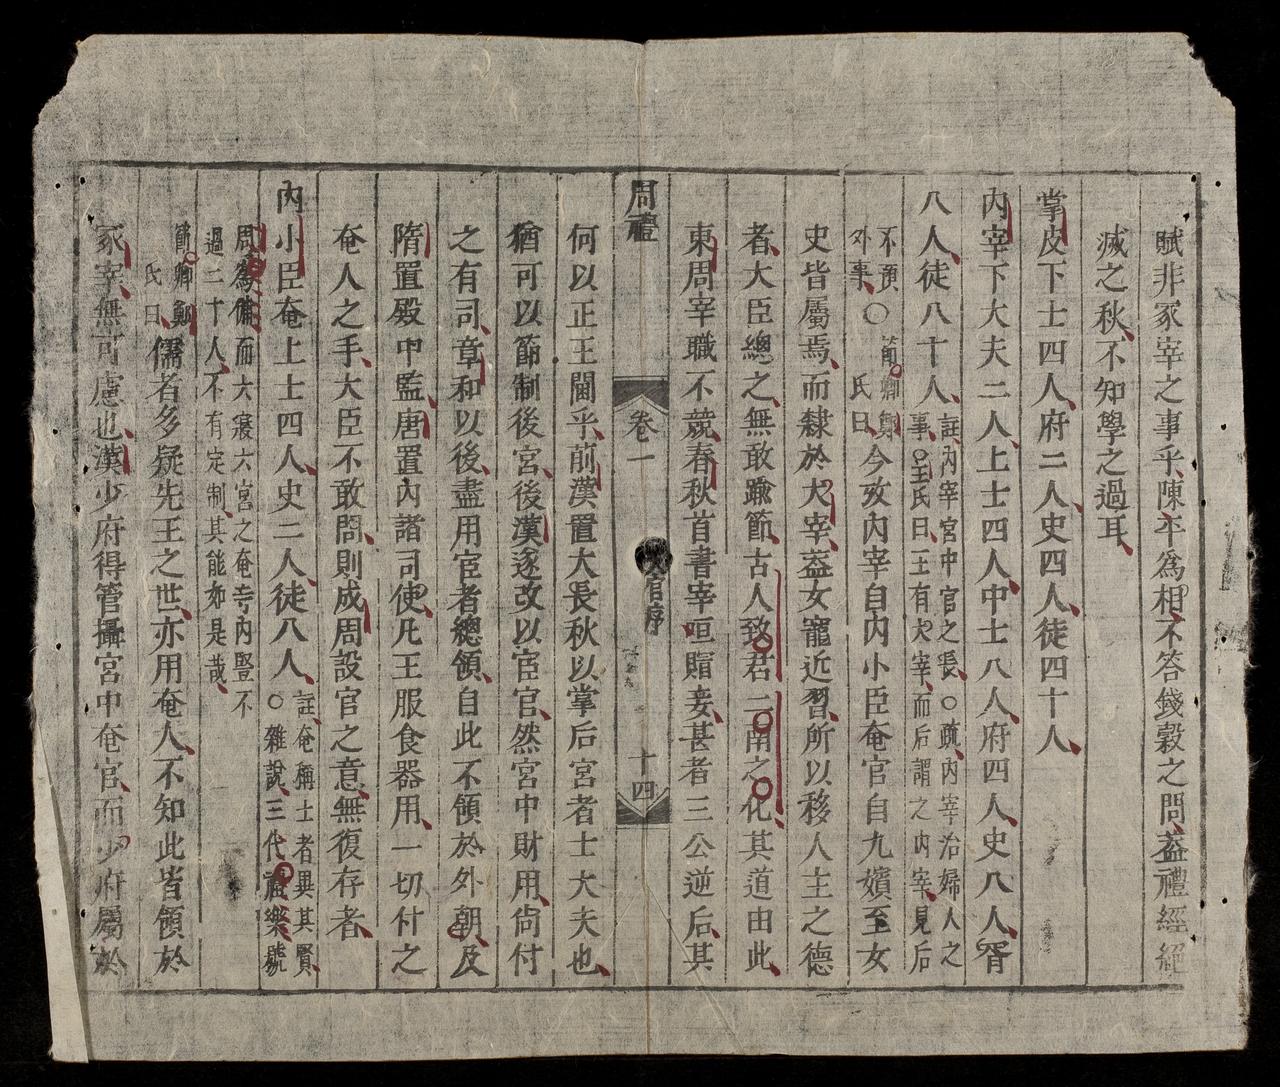 賦非冢宰之事乎陳平為相不答錢穀之問葢禮經絕
滅之秋不知學之過耳
掌皮下士四人府二人史四人徒四十人
內宰下大夫二人上士四人中士八人府四人史八人胥
八人徒八十人註內宰宮中官之長○疏內宰治婦人之
事○王氏曰王有大宰而后謂之內宰見后
不預○節卿鄭
外事 氏曰今攷內宰自內小臣奄官自九嬪至女
史皆屬焉而隸於大宰葢女寵近習所以移人主之德
者大臣總之無敢踰節古人致君二南之化其道由此
東周宰職不競春秋首書宰咺賵妾甚者三公逆后其
周禮 卷一 天官序 十四
何以正王闈乎前漢置大長秋以掌后宮者士大夫也
猶可以節制後宮後漢遂改以宦官然宮中財用尚付
之有司章和以後盡用宦者總領自此不領於外朝及
隋置殿中監唐置內諸司使凡王服食器用一切付之
奄人之手大臣不敢問則成周設官之意無復存者
內小臣奄上士四人史二人徒八人註奄稱士者異其賢
○雜說三代禮樂號
周為備而六寢六宮之奄寺內豎不
過二十人不有定制其能如是哉
節卿鄭
氏曰儒者多疑先王之世亦用奄人不知此皆領於
冢宰無可慮也漢少府得管攝宮中奄官而少府屬於